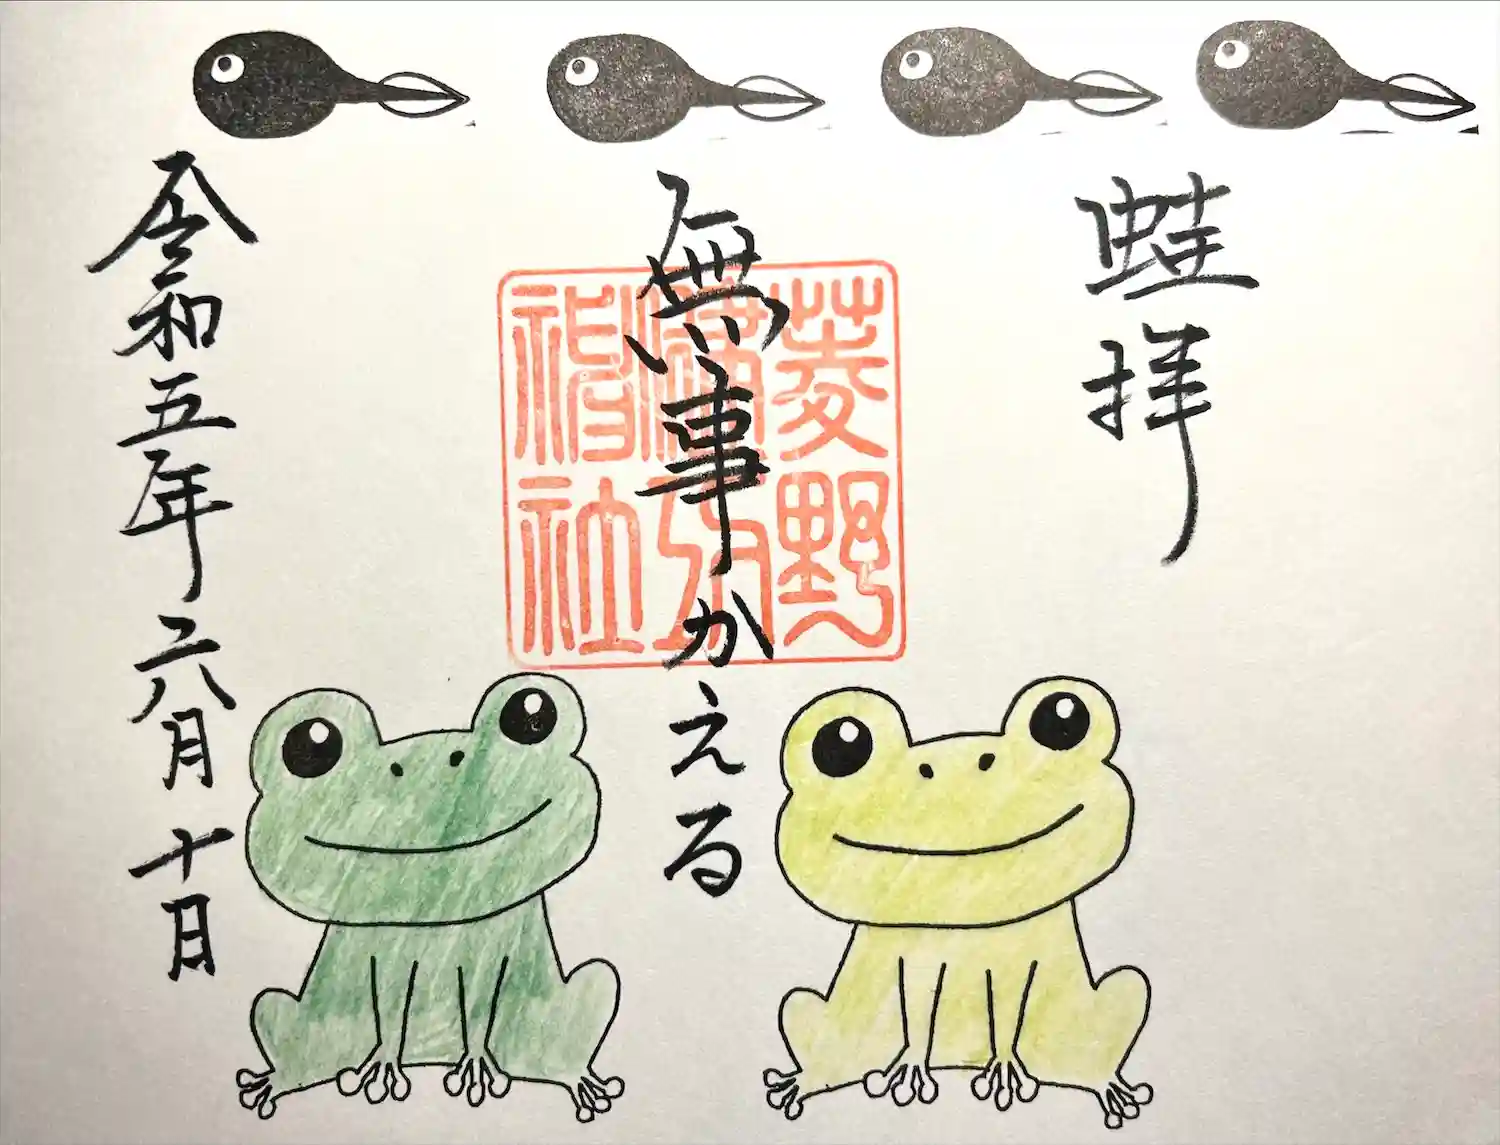 蛙拝
無事かえる
令和五年六月十日
菱野
神社